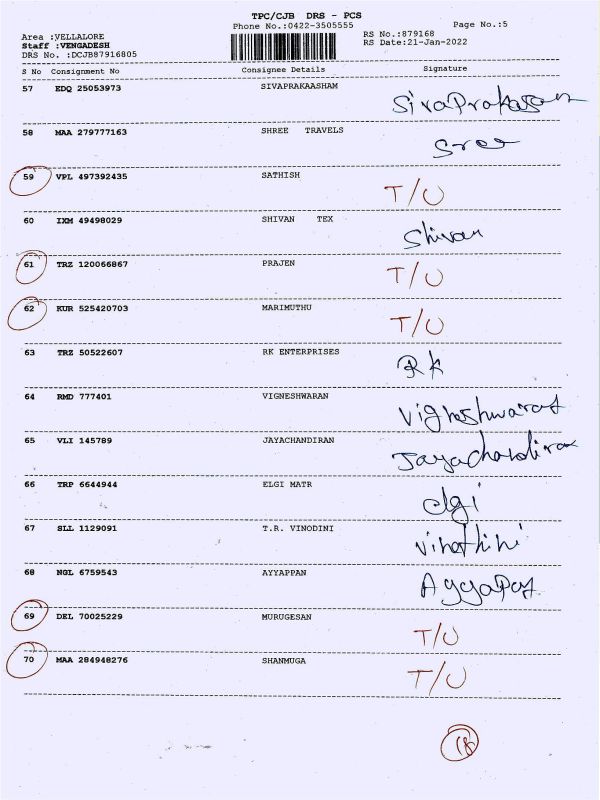 TPC/CJB DRS - PCS
Phone No.:0422-3505555
Page No.:5
Area :VELLALORE
RS No.:879168
Staff :VENGADESH
RS Date:21-Jan-2022
DRS No. :DCJB87916805
S No Consignment No Consignee Details Signature
57 EDQ 25053973 SIVAPRAKAASHAM SivaPrakasam
58 MAA 279777163 SHREE TRAVELS Sree
59 VPL 497392435 SATHISH T/U
60 IXM 49498029 SHIVAN TEX Shivan
61 TRZ 120066867 PRAJEN T/U
62 KUR 525420703 MARIMUTHU T/U
63 TRZ 50522607 RK ENTERPRISES RK
64 RMD 777401 VIGNESHWARAN
65 VLI 145789 JAYACHANDIRAN Jayachandiran
66 TRP 6644944 ELGI MATR elgi
67 SLL 1129091 T.R. VINODINI Vinothini
68 NGL 6759543 AYYAPPAN
69 DEL 70025229 MURUGESAN T/U
70 MAA 284948276 SHANMUGA T/U
18